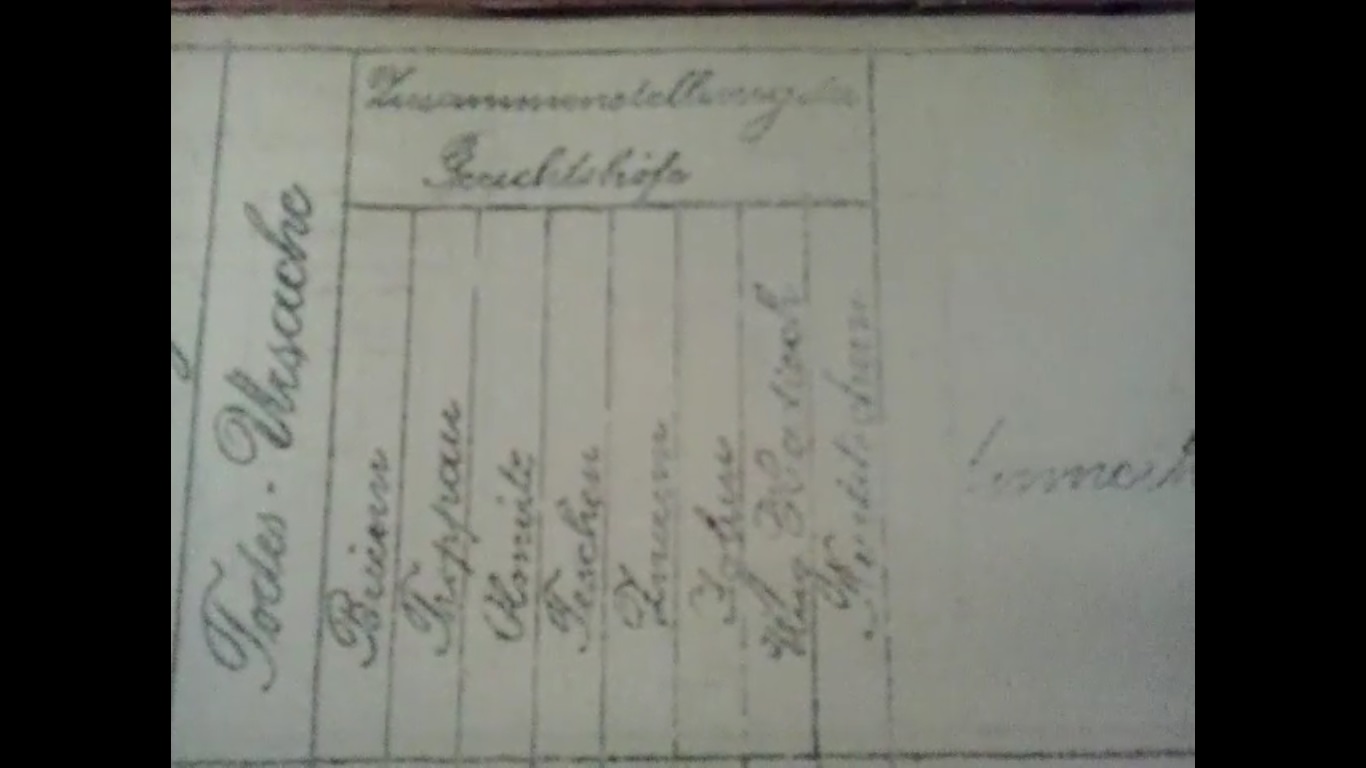 Todes-Ursache
Zusammenstellung der
Gerichtshöfe
Brünn
Troppau
Olmütz
Teschen
Znaim
Iglau
Ung. Hradisch
Neutitschein